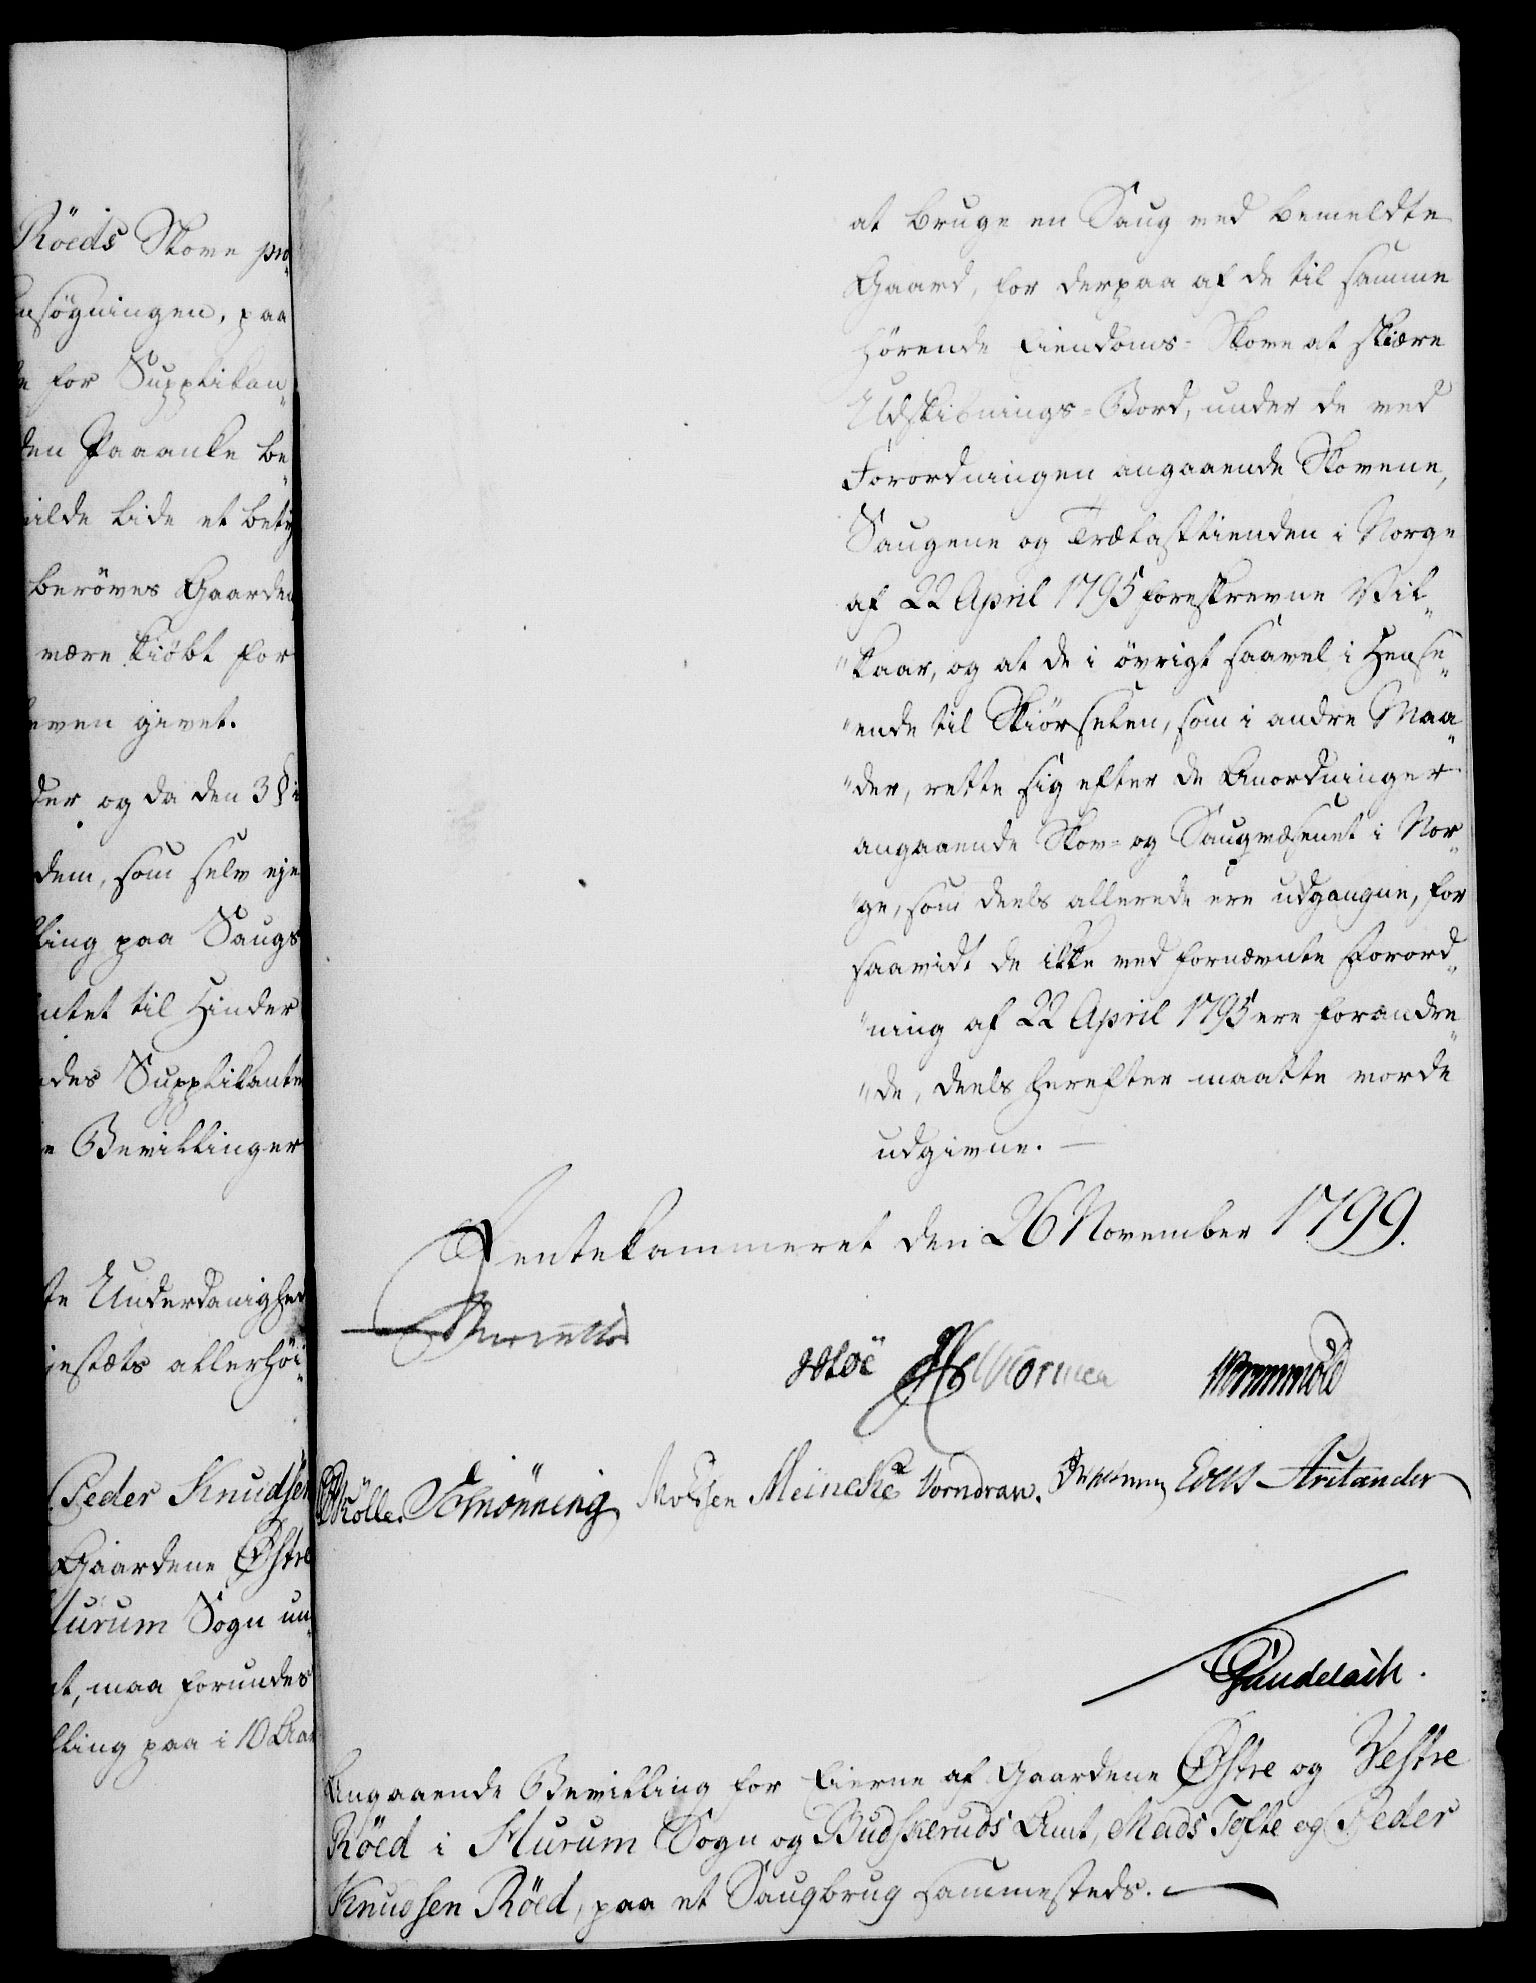 Röeds Skove pro
nsögningen, paa
for Supplikan
den Paaanke be
vilde lide et bety
berøves Gaarden
være kiøbt for
even givet.
der og da den 3 § i
dem, som selv eje
ling paa Saugs
intet til Hinder
des Supplikante
e Bevillinger
te Underdanighed
jestæts allerhöi
Peder Knudsen
Gaardene Østre
Hurum Sogn un
t, maa forundes
lling paa i 10 Aar
at bruge en Saug ved bemeldte
Gaard, for derpaa af de til samme
hørende Eiendoms-Skove at skiære
Udskibnings-Bord, under de ved
Forordningen angaaende Skovene,
Saugene og Trælasttienden i Norge
af 22 April 1795 foreskrevne Vil„
„kaar, og at de i øvrigt saavel i Hense„
„ende til Skiørselen, som i andre Maa„
„der, rette sig efter de Anordninger
angaaende Skov- og Saugvæsenet i Nor„
„ge, som deels allerede ere udgangne, for
saavidt de ikke ved fornævnte Forord„
„ning af 22 April 1795 ere forandre„
„de, deels herefter maatte vorde
udgivne. —
Rentekammeret den 26 November 1799.
Wormen
Schiönning Meincke Vorndran. Aritander
Gaudelach.
Angaaende Bevilling for Eierne af Gaardene Østre og Vestre
Röed i Hurum Sogn og Budskeruds Amt, Mads Tofte og Peder
Knudsen Röed, paa et Saugbrug sammesteds. —